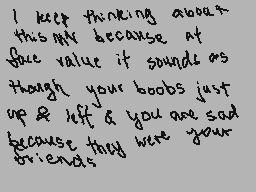 I keep thinking about
this because at
face value it sounds as
though your boobs just
up & left & you are sad
because they were your
friends